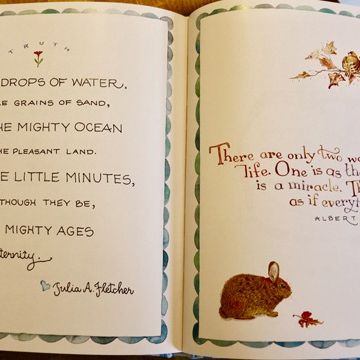 TRUTH
DROPS OF WATER,
GRAINS OF SAND,
THE MIGHTY OCEAN
THE PLEASANT LAND.
LITTLE MINUTES,
THOUGH THEY BE,
MIGHTY AGES
eternity.
Julia A. Fletcher
There are only two
life. One is as
is a miracle.
as if
ALBERT